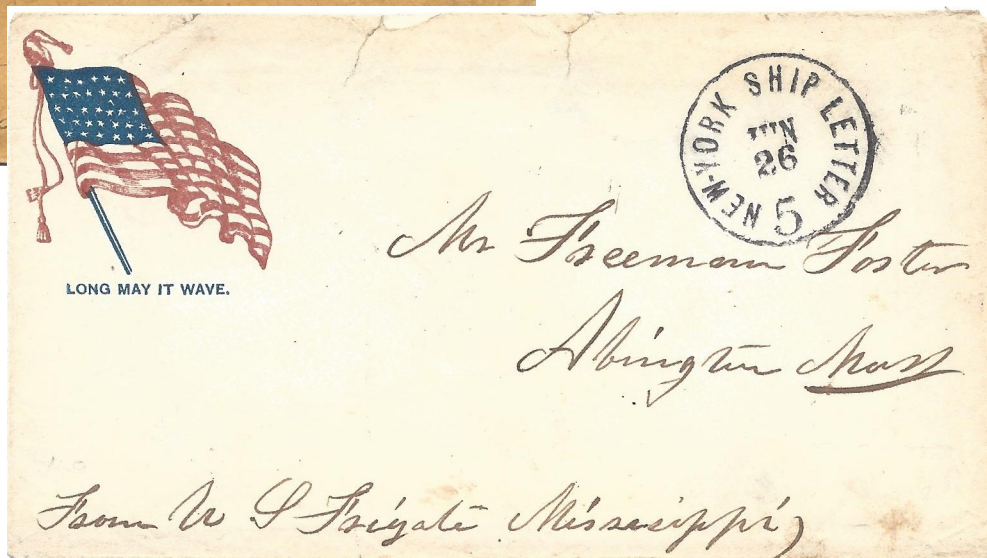 LONG MAY IT WAVE.
NEW-YORK SHIP LETTER
JUN
26
5
Mr Freeman Foster
Abington Mass
From U S Frigate Mississippi